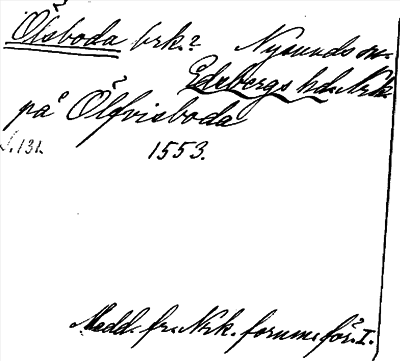 Ölsboda brk.? Nysunds sn.
Edsbergs hd. Nrk.
på Ölfvisboda
s. 131. 1553.
Medd. fr. Nrk. fornm. för. I.